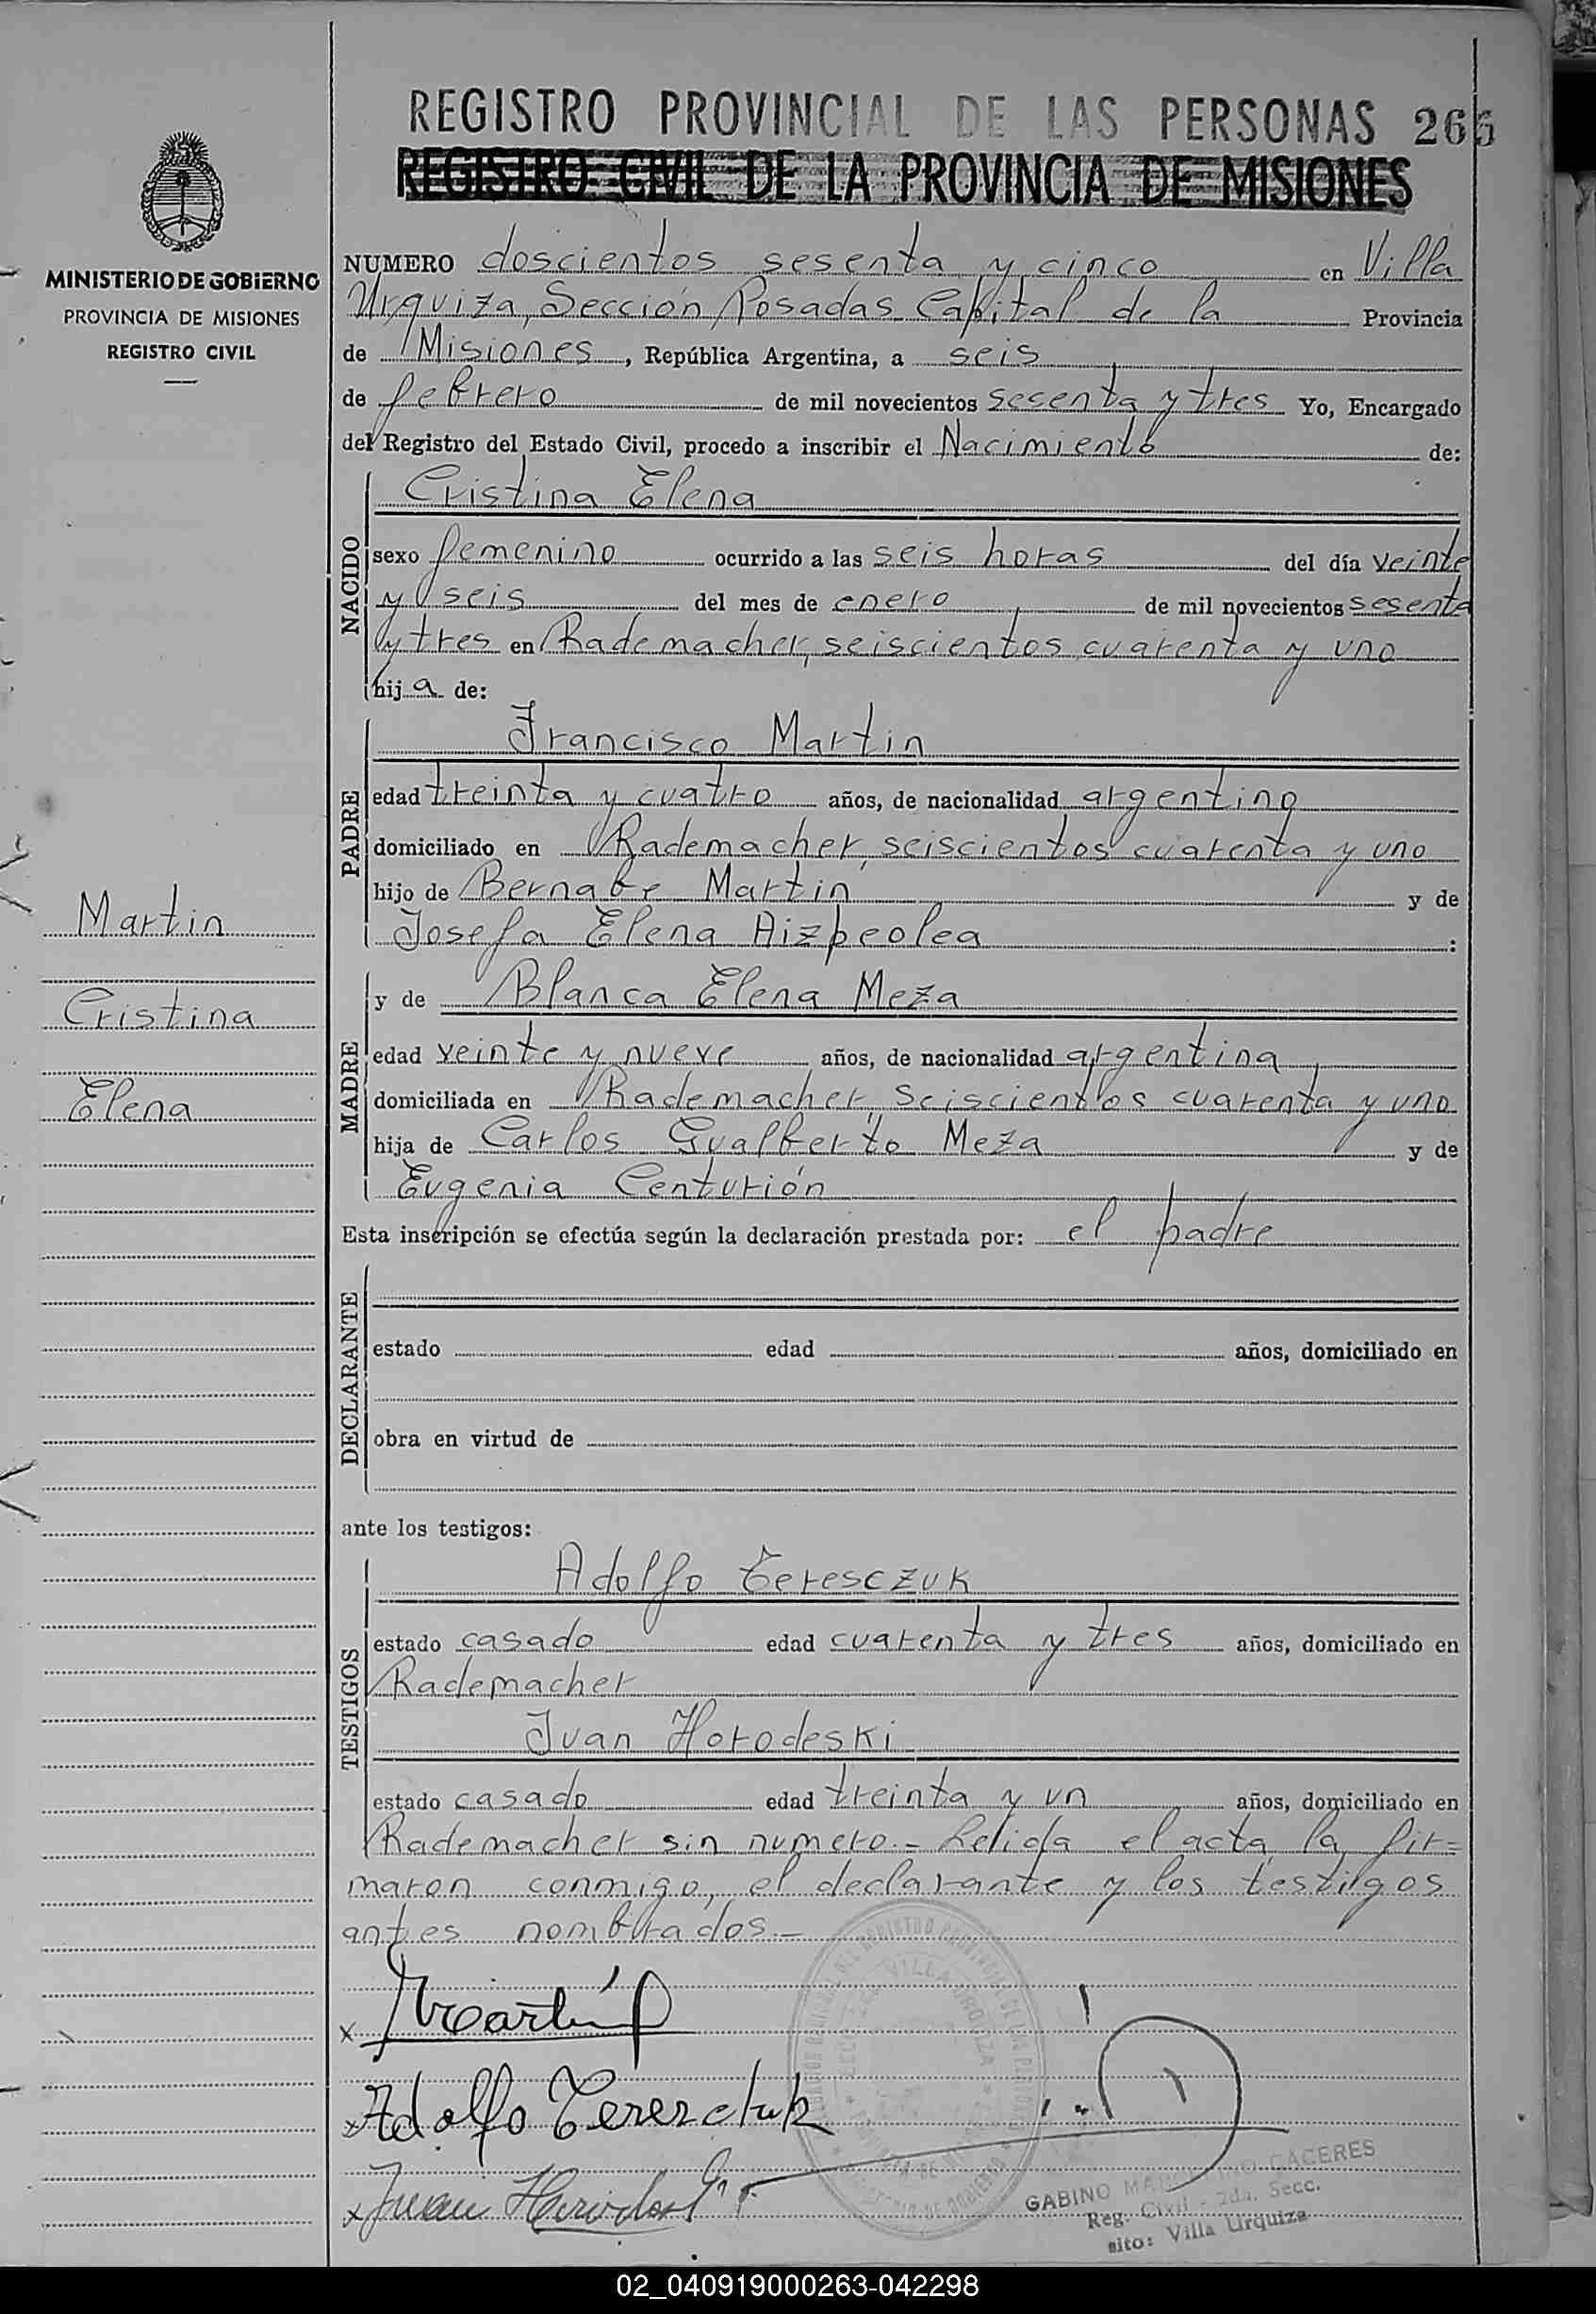 REGISTRO PROVINCIAL DE LAS PERSONAS 265
REGISTRO CIVIL DE LA PROVINCIA DE MISIONES
MINISTERIO DE GOBIERNO
PROVINCIA DE MISIONES
REGISTRO CIVIL
NUMERO doscientos sesenta y cinco en Villa
Urquiza, Sección Posadas Capital de la Provincia
de Misiones, República Argentina, a seis
de febrero de mil novecientos sesenta y tres Yo, Encargado
del Registro del Estado Civil, procedo a inscribir el Nacimiento de:
NACIDO
Cristina Elena
sexo femenino ocurrido a las seis horas del día veinte
y seis del mes de enero de mil novecientos sesenta
y tres en Rademacher, seiscientos cuarenta y uno
hija de:
PADRE
Francisco Martin
edad treinta y cuatro años, de nacionalidad argentino
domiciliado en Rademacher, seiscientos cuarenta y uno
hijo de Bernabe Martin y de
Josefa Elena Aizpeolea :
Martin
Cristina
Elena
MADRE
y de Blanca Elena Meza
edad veinte y nueve años, de nacionalidad argentina
domiciliada en Rademacher, seiscientos cuarenta y uno
hija de Carlos Gualberto Meza y de
Eugenia Centurión
Esta inscripción se efectúa según la declaración prestada por: el padre
DECLARANTE
estado edad años, domiciliado en
obra en virtud de
ante los testigos:
TESTIGOS
Adolfo Teresczuk
estado casado edad cuarenta y tres años, domiciliado en
Rademacher
Juan Horodeski
estado casado edad treinta y un años, domiciliado en
Rademacher sin numero.- Lelida el acta, la fir=
maron conmigo, el declarante y los testigos
antes nombrados.-
x Martín
x Adolfo Teresctuk
x Juan
VILLA URQUIZA
GABINO CACERES
Reg. Civil - 2da. Secc.
sito: Villa Urquiza
02_040919000263-042298